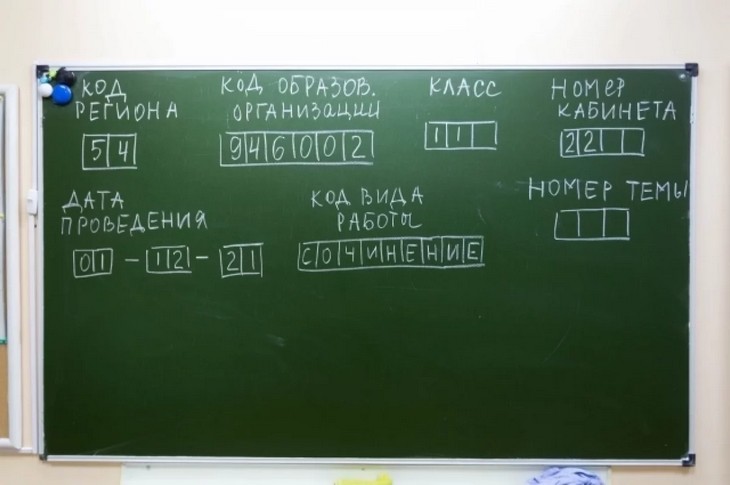 КОД
РЕГИОНА
54
КОД ОБРАЗОВ.
ОРГАНИЗАЦИИ
946002
КЛАСС
11
НОМЕР
КАБИНЕТА
22
ДАТА
ПРОВЕДЕНИЯ
01 - 12 - 21
КОД ВИДА
РАБОТЫ
СОЧИНЕНИЕ
НОМЕР ТЕМЫ